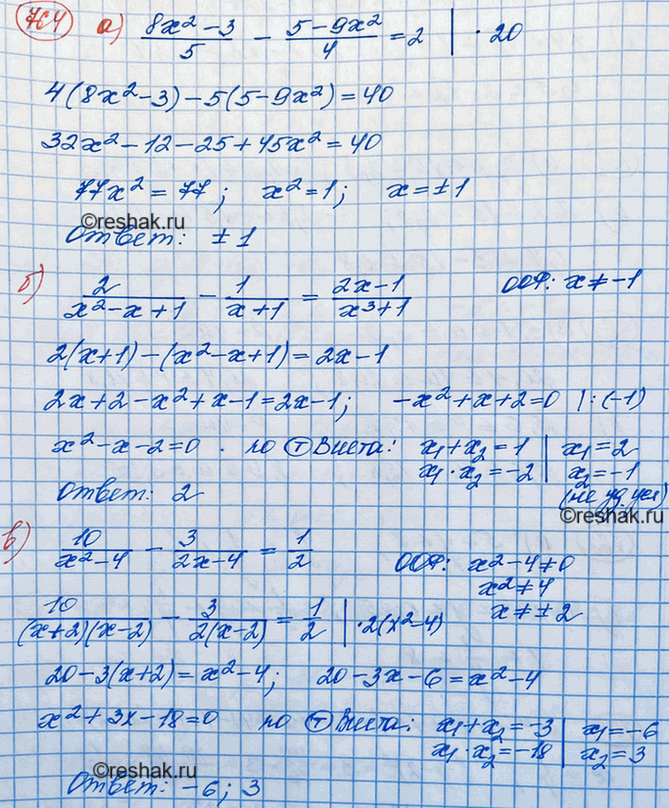 764 а) (8x² − 3)/5 − (5 − 9x²)/4 = 2 | · 20
4(8x² − 3) − 5(5 − 9x²) = 40
32x² − 12 − 25 + 45x² = 40
77x² = 77; x² = 1; x = ±1
©reshak.ru
Ответ: ± 1
б) 2/(x² − x + 1) − 1/(x + 1) = (2x − 1)/(x³ + 1) ООФ: x ≠ −1
2(x+1) − (x² − x + 1) = 2x − 1
2x + 2 − x² + x − 1 = 2x − 1; −x² + x + 2 = 0 | : (−1)
x² − x − 2 = 0 . по Т Виета: x₁ + x₂ = 1 | x₁ = 2
x₁ · x₂ = −2 | x₂ = −1
Ответ: 2 (не уд. усл)
©reshak.ru
в) 10/(x² − 4) − 3/(2x − 4) = 1/2 ООФ: x² − 4 ≠ 0
x² ≠ 4
10/((x+2)(x−2)) − 3/(2(x−2)) = 1/2 | · 2(x² − 4) x ≠ ± 2
20 − 3(x+2) = x² − 4; 20 − 3x − 6 = x² − 4
x² + 3x − 18 = 0 по Т Виета: x₁ + x₂ = −3 | x₁ = −6
x₁ · x₂ = −18 | x₂ = 3
©reshak.ru
Ответ: −6; 3